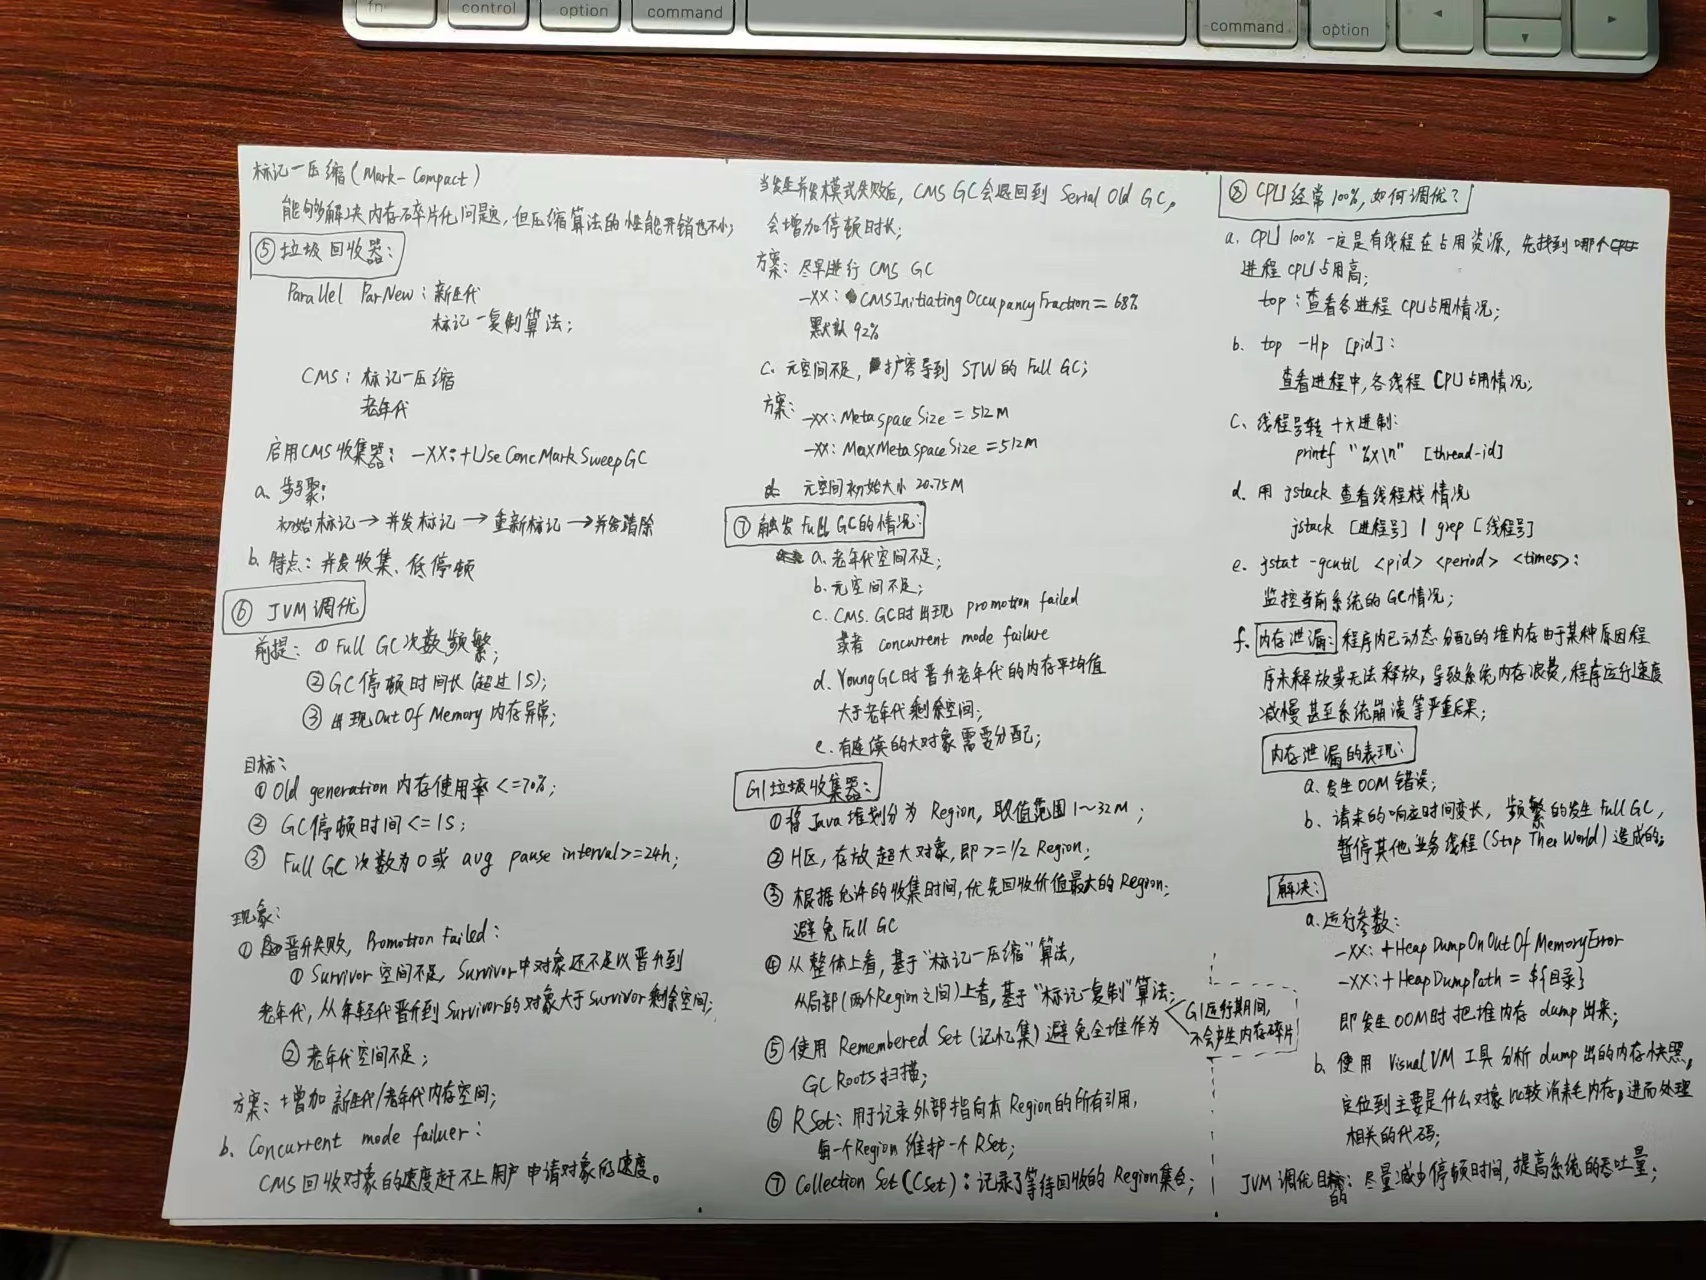 fn
control
option
command
command
option
标记—压缩(Mark-Compact)
能够解决内存碎片化问题，但压缩算法的性能开销也不小;
⑤垃圾回收器:
Parallel ParNew：新生代
标记—复制算法;
CMS：标记—压缩
老年代
启用CMS收集器：-XX:+UseConcMarkSweepGC
a. 步骤:
初始标记→并发标记→重新标记→并发清除
b. 特点：并发收集、低停顿
⑥ JVM调优
前提：①Full GC次数频繁;
②GC停顿时间长(超过1S);
③出现OutOfMemory内存异常;
目标:
①Old generation内存使用率<=70%;
② GC停顿时间<=1S;
③ Full GC次数为0或 avg pause interval>=24h;
现象:
① 晋升失败, Promotion Failed:
① Survivor空间不足, Survivor中对象还不足以晋升到
老年代, 从年轻代晋升到Survivor的对象大于Survivor剩余空间;
②老年代空间不足;
方案：增加新生代/老年代内存空间;
b. Concurrent mode failuer:
CMS回收对象的速度赶不上用户申请对象的速度。
当发生并发模式失败后, CMS GC会退回到 Serial Old GC,
会增加停顿时长;
方案：尽早进行 CMS GC
-XX：CMSInitiatingOccupancyFraction=68%
默认92%
c. 元空间不足, 扩容导到 STW的Full GC;
方案：-XX:MetaspaceSize=512M
-XX:MaxMetaspaceSize=512M
d. 元空间初始大小 20.75M
⑦触发Full GC的情况:
a. 老年代空间不足;
b. 元空间不足;
c. CMS. GC时出现 promotion failed
或者 concurrent mode failure
d. YoungGC时晋升老年代的内存平均值
大于老年代剩余空间;
e. 有连续的大对象需要分配;
G1垃圾收集器:
①将Java堆划分为 Region, 取值范围1~32M;
②H区, 存放超大对象, 即>=1/2 Region;
③根据允许的收集时间, 优先回收价值最大的Region;
避免Full GC
④从整体上看, 基于"标记—压缩"算法,
从局部(两个Region之间)上看, 基于"标记—复制"算法;
G1运行期间,
不会产生内存碎片
⑤使用 Remembered Set(记忆集)避免全堆作为
GC Roots扫描;
⑥ RSet：用于记录外部指向本Region的所有引用,
每一个Region维护一个RSet;
⑦ Collection Set(CSet)：记录了等待回收的Region集合;
⑧ CPU经常100%, 如何调优?
a. CPU 100%一定是有线程在占用资源, 先找到哪个CPU
进程CPU占用高;
top：查看各进程CPU占用情况;
b. top -Hp [pid]:
查看进程中, 各线程CPU占用情况;
c. 线程号转十六进制:
printf "%x\n" [thread-id]
d. 用 jstack 查看线程栈情况
jstack [进程号] | grep [线程号]
e. jstat -gcutil <pid> <period> <times>:
监控当前系统的GC情况;
f. 内存泄漏：程序内已动态分配的堆内存由于某种原因程
序未释放或无法释放, 导致系统内存浪费, 程序运行速度
减慢甚至系统崩溃等严重后果;
内存泄漏的表现:
a. 发生OOM错误;
b. 请求的响应时间变长, 频繁的发生Full GC,
暂停其他业务线程(Stop The World)造成的;
解决:
a. 运行参数:
-XX:+HeapDumpOnOutOfMemoryError
-XX:+HeapDumpPath=${目录}
即发生OOM时把堆内存dump出来;
b. 使用 VisualVM工具分析dump出的内存快照,
定位到主要是什么对象比较消耗内存, 进而处理
相关的代码;
JVM调优目的：尽量减少停顿时间, 提高系统的吞吐量;